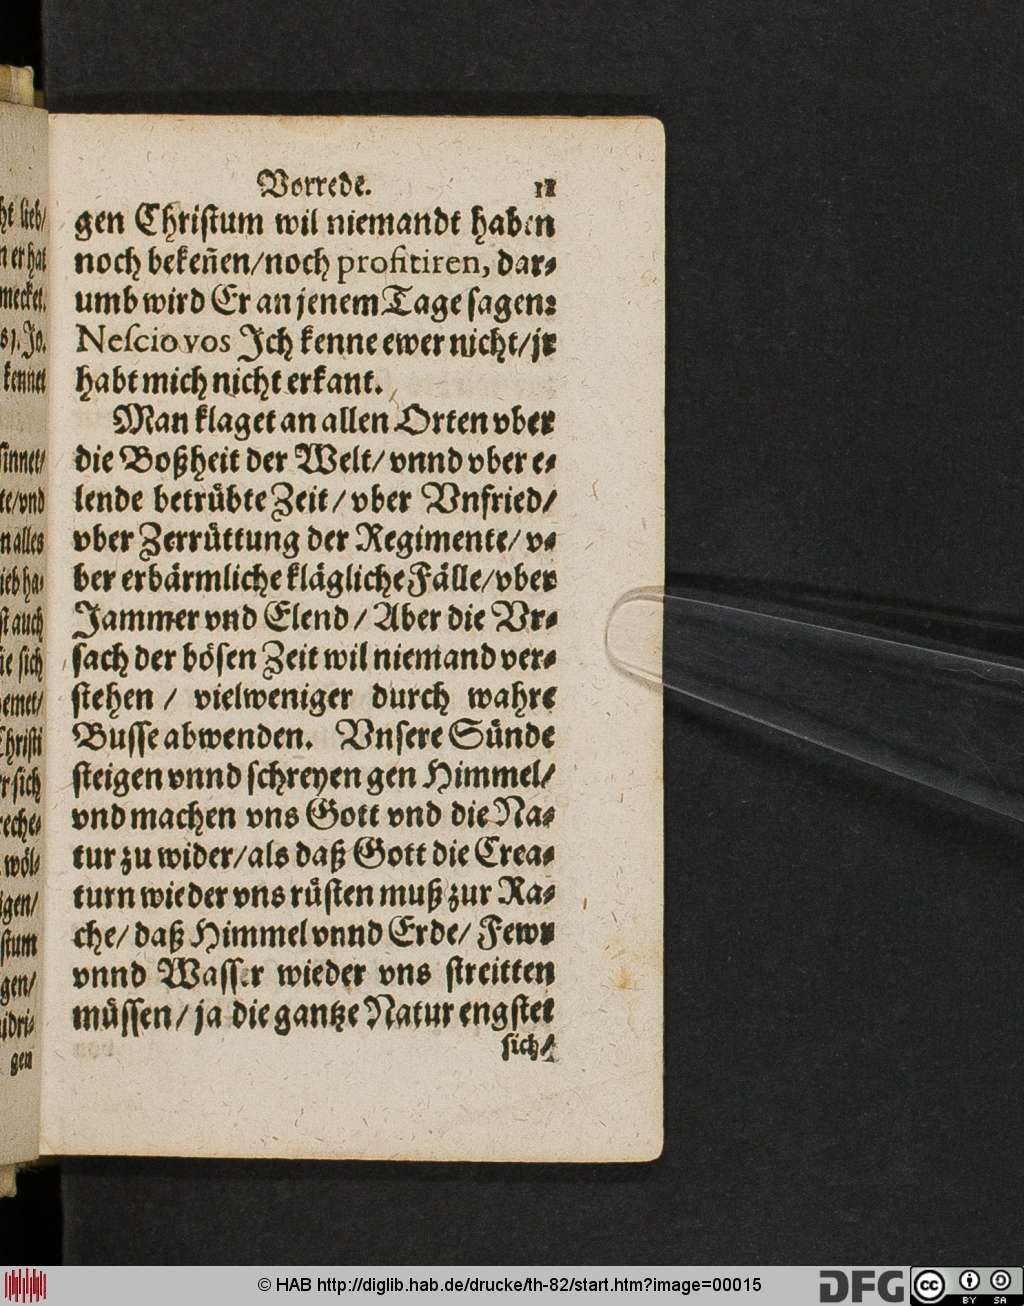 Vorrede. 11
gen Chriſtum wil niemandt haben
noch bekeñen/noch profitiren, dar⸗
umb wird Er an jenem Tage ſagen:
Neſcio vos Jch kenne ewer nicht/jr
habt mich nicht erkant.
Man klaget an allen Orten vber
die Boßheit der Welt/ vnnd vber e⸗
lende betrübte Zeit/ vber Vnfried/
vber Zerrüttung der Regimente/ v⸗
ber erbärmliche klägliche Fälle/vber
Jammer vnd Elend/ Aber die Vr⸗
ſach der böſen Zeit wil niemand ver⸗
ſtehen/ vielweniger durch wahre
Buſſe abwenden. Vnſere Sünde
ſteigen vnnd ſchreyen gen Himmel/
vnd machen vns Gott vnd die Na⸗
tur zu wider/als daß Gott die Crea⸗
turn wieder vns rüſten muß zur Ra⸗
che/ daß Himmel vnnd Erde/ Fewr
vnnd Waſſer wieder vns ſtreitten
müſſen/ ja die gantze Natur engſtet
ſich/
ht lieb/
n er hat
mecket.
kennet
ſinnet/
te/vnd
n alles
ieb ha⸗
ſt auch
ie ſich
emet/
Chriſti
r ſich
reche⸗
wöl⸗
igen/
ſtum
gen/
idri⸗
gen
© HAB http://diglib.hab.de/drucke/th-82/start.htm?image=00015
DFG
cc BY SA